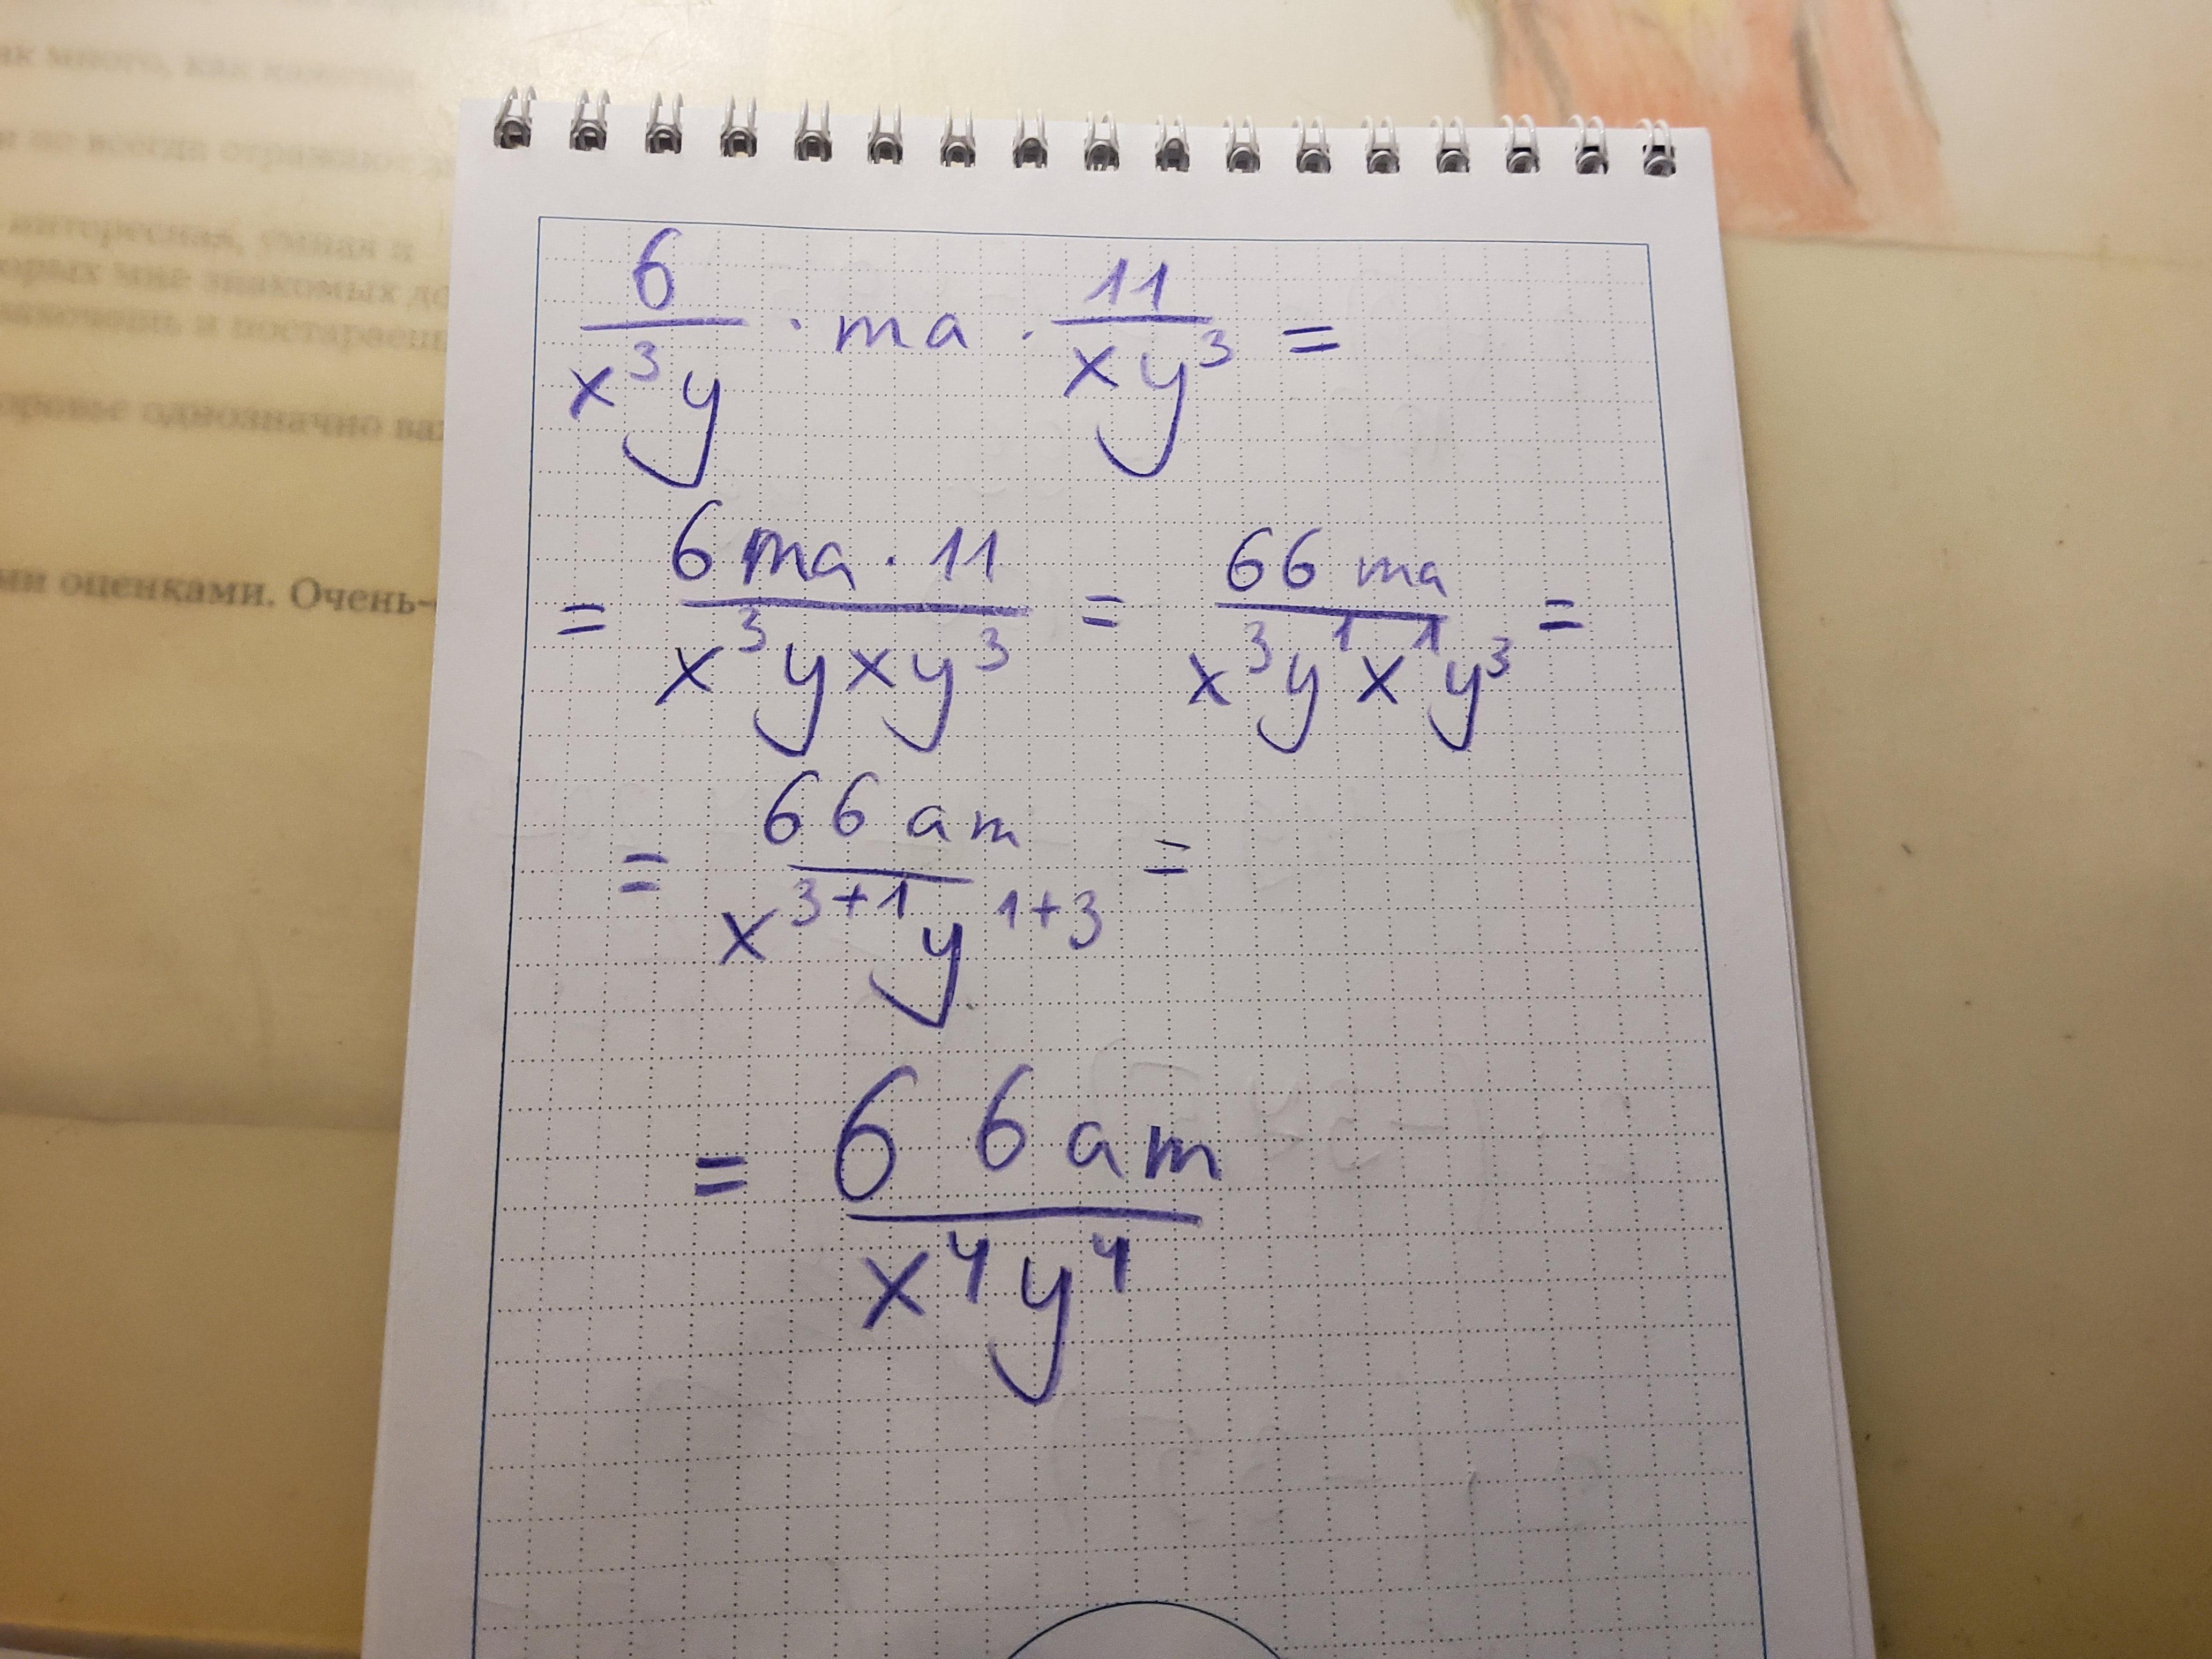 ак много, как кажется
и не всегда отражают
интересная, умная и
орых мне знакомых до
захочешь и постараеш
оровье однозначно ва
ми оценками. Очень-
6/(x³y) · ma · 11/(xy³) =
= (6ma · 11)/(x³yxy³) = (66ma)/(x³y¹x¹y³) =
= (66am)/(x³⁺¹y¹⁺³) =
= (66am)/(x⁴y⁴)